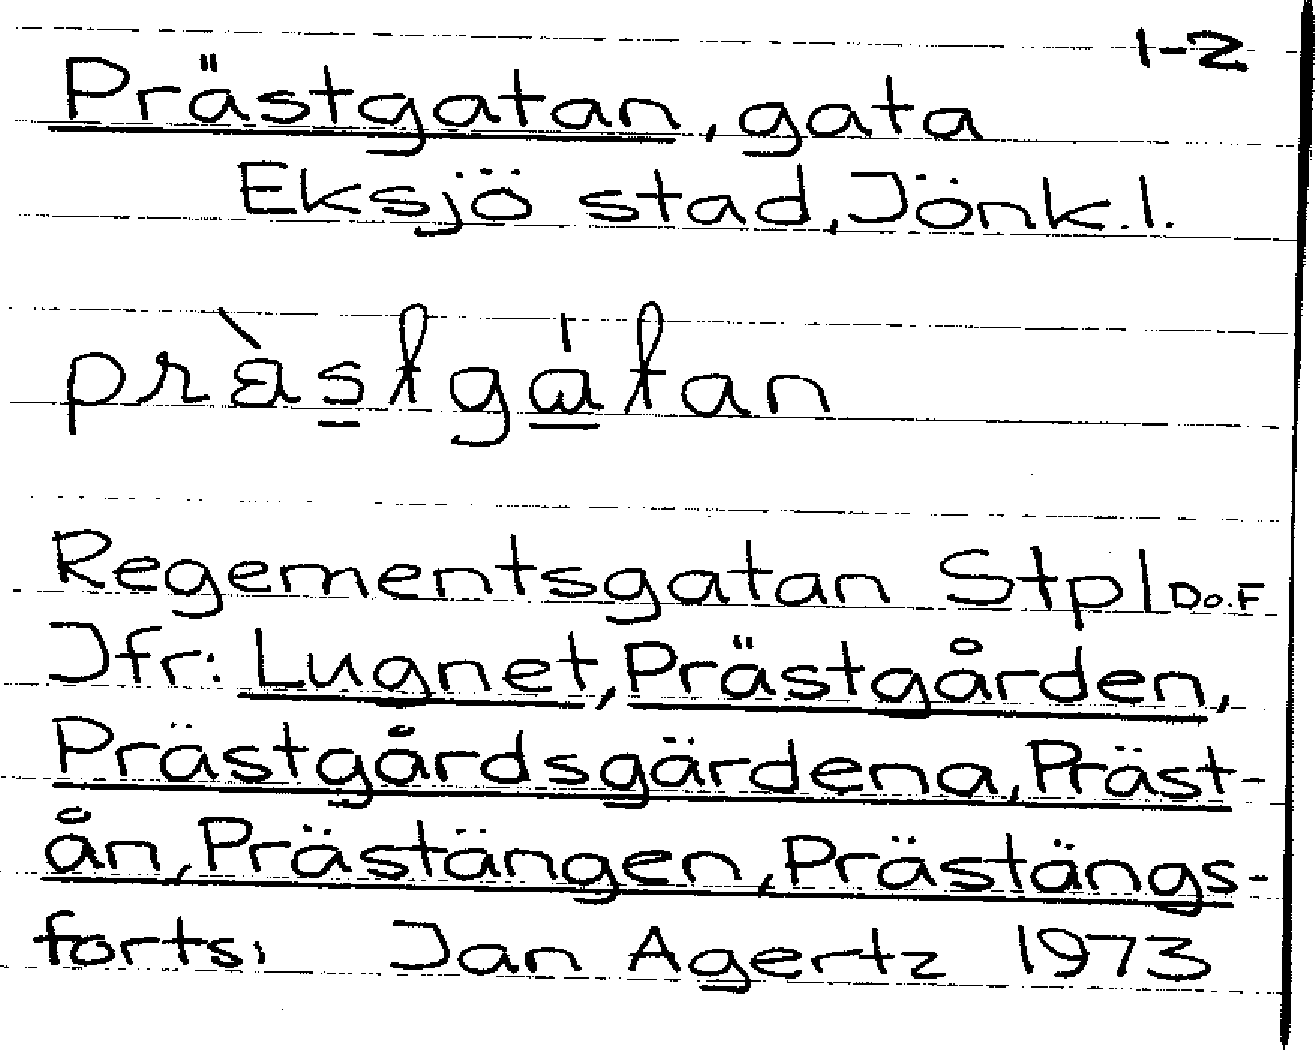 1-2
Prästgatan, gata
Eksjö stad, Jönk.l.
præ̀stgátan
Regementsgatan Stpl D o. F
Jfr: Lugnet, Prästgården,
Prästgårdsgärdena, Präst-
ån, Prästängen, Prästängs-
forts. Jan Agertz 1973